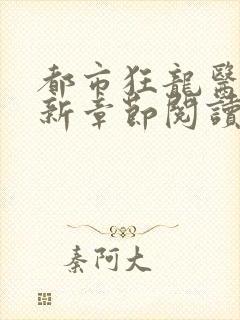 都市狂龍醫
新章節閱讀
秦阿大